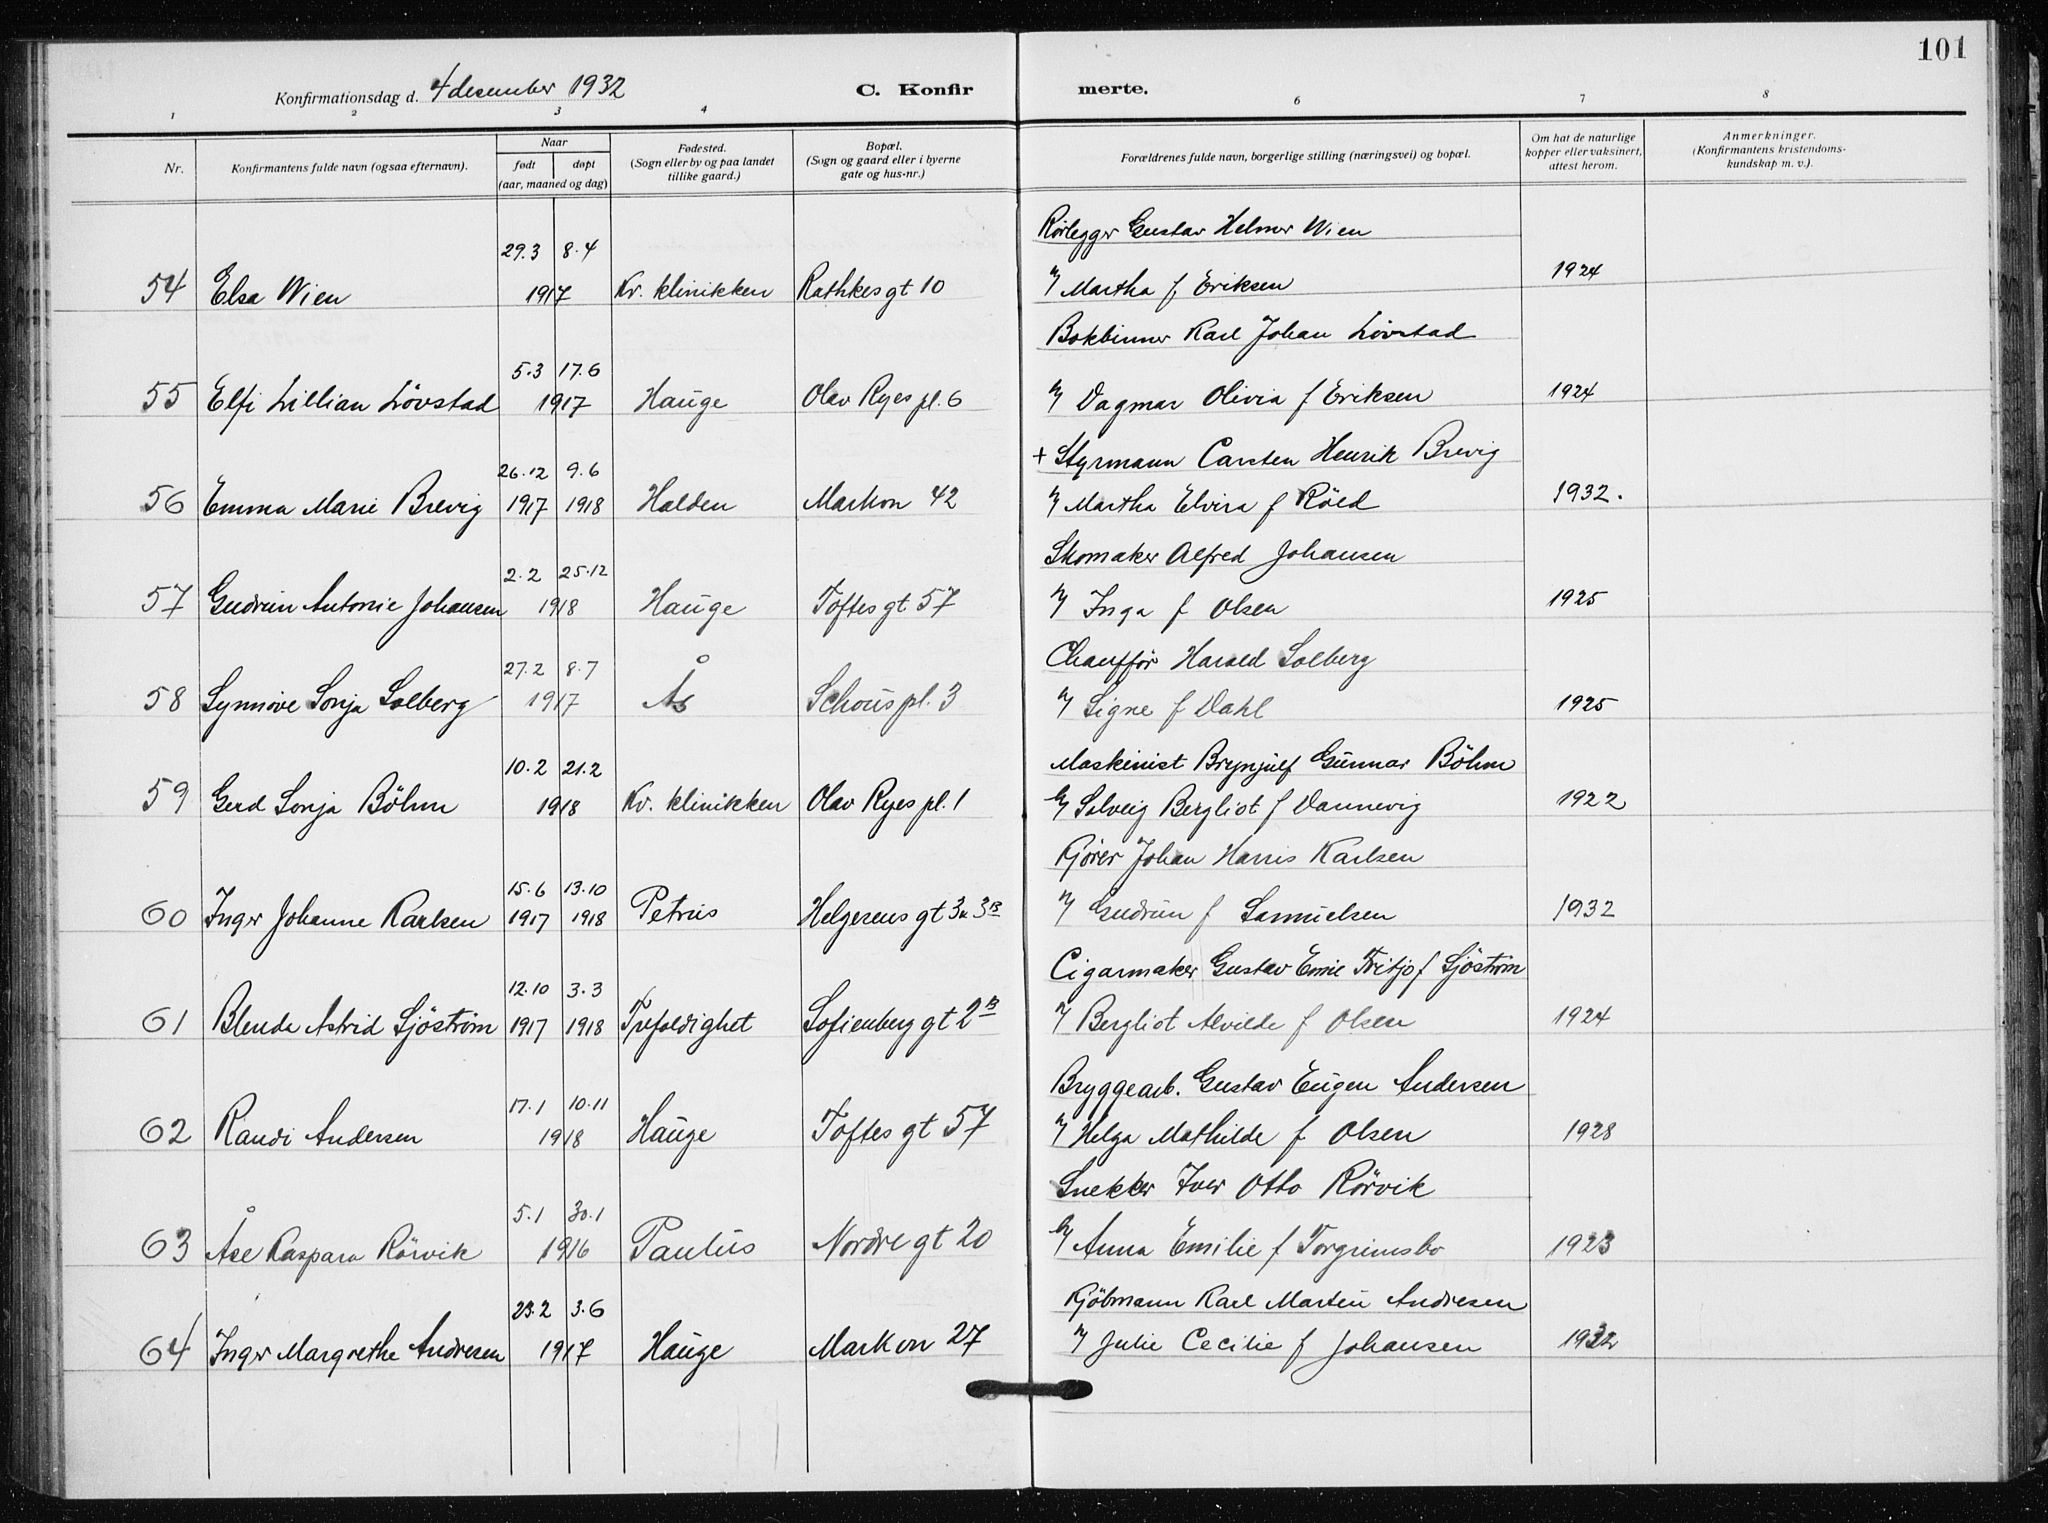 101
Konfirmationsdag d. 4 desember 1932 C. Konfirmerte.
1 2 3 4 6 7 8
Nr. Konfirmantens fulde navn (ogsaa efternavn). Naar født døpt (aar, maaned og dag) Fødested. (Sogn eller by og paa landet tillike gaard.) Bopæl. (Sogn og gaard eller i byerne gate og hus-nr.) Forældrenes fulde navn, borgerlige stilling (næringsvei) og bopæl. Om hat de naturlige kopper eller vaksinert, attest herom. Anmerkninger. (Konfirmantens kristendoms-kundskap m. v.).
29.3 8.4 Rørlegger Gustav Helmer Wien
54 Elsa Wien 1917 Kv. klinikken Rathkesgt 10 Martha f Eriksen 1924
5.3 17.6 Bokbinner Karl Johan Lövstad
55 Elfi Lillian Lövstad 1917 Hauge Olav Ryes pl. 6 Dagmar Olivia f Eriksen 1924
26.12 9.6 + Styrmann Carsten Henrik Brevig
56 Emma Marie Brevig 1917 1918 Halden Markvn 42 Martha Elvira f Röed 1932.
2.2 25.12 Skomaker Alfred Johansen
57 Gudrun Antonie Johansen 1918 Hauge Toftesgt 57 Inga f Olsen 1925
27.2 8.7 Chaufför Harald Solberg
58 Synnöve Sonja Solberg 1917 Ås Schous pl. 3 Signe f Dahl 1925
10.2 21.2 Maskinist Brynjulf Gunnar Böhm
59 Gerd Sonja Böhm 1918 Kv. klinikken Olav Ryes pl. 1 Solveig Bergliot f Dannevig 1922
15.6 13.10 Kjörer Johan Harris Karlsen
60 Inger Johanne Karlsen 1917 1918 Petrus Helgesens gt Gudrun f Samuelsen 1932
12.10 3.3 Cigarmaker Gustav Emil Fritjof Sjöström
61 Blenda Astrid Sjöström 1917 1918 Trefoldighet Sofienberg gt 2B Bergliot Alvilde f Olsen 1924
17.1 10.11 Bryggearb. Gustav Eugen Andersen
62 Randi Andersen 1918 Hauge Toftes gt 57 Helga Mathilde f Olsen 1928
5.1 30.1 Snekker Iver Otto Rörvik
63 Åse Kaspara Rörvik 1916 Paulus Nordre gt 20 Anna Emilie f Torgrimsbo 1923
23.2 3.6 Kjöbmann Karl Martin Andresen
64 Inger Margrethe Andresen 1917 Hauge Markvn 27 Julie Cecilie f Johansen 1932